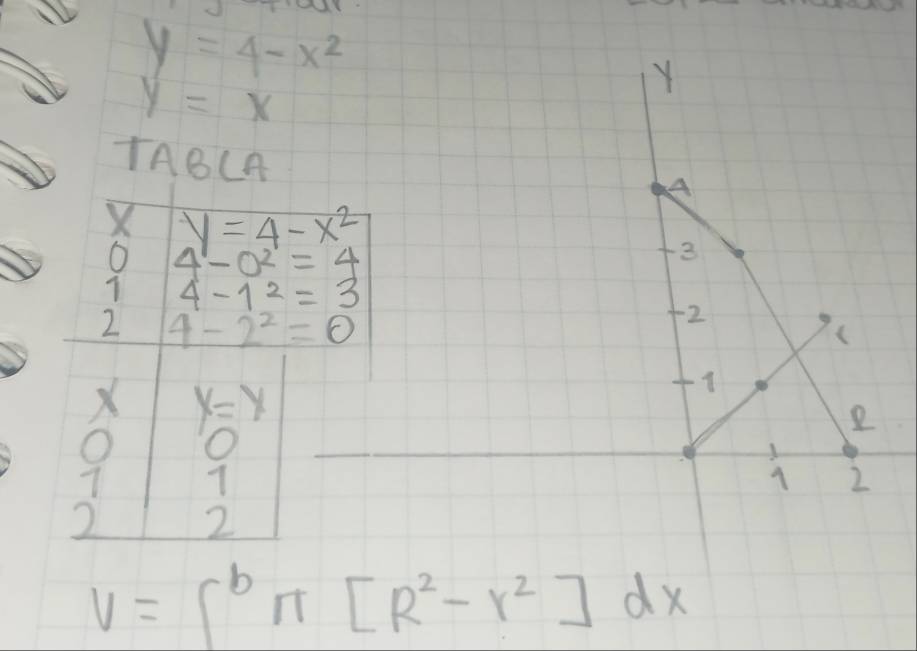 y = 4 - x²
y = x
TABLA
x y = 4 - x²
0 4 - 0² = 4
1 4 - 1² = 3
2 4 - 2² = 0
x y = x
0 0
1 1
2 2
Y
4
3
2
r
1
R
1 2
V = ∫ᵇ π [R² - r²] dx